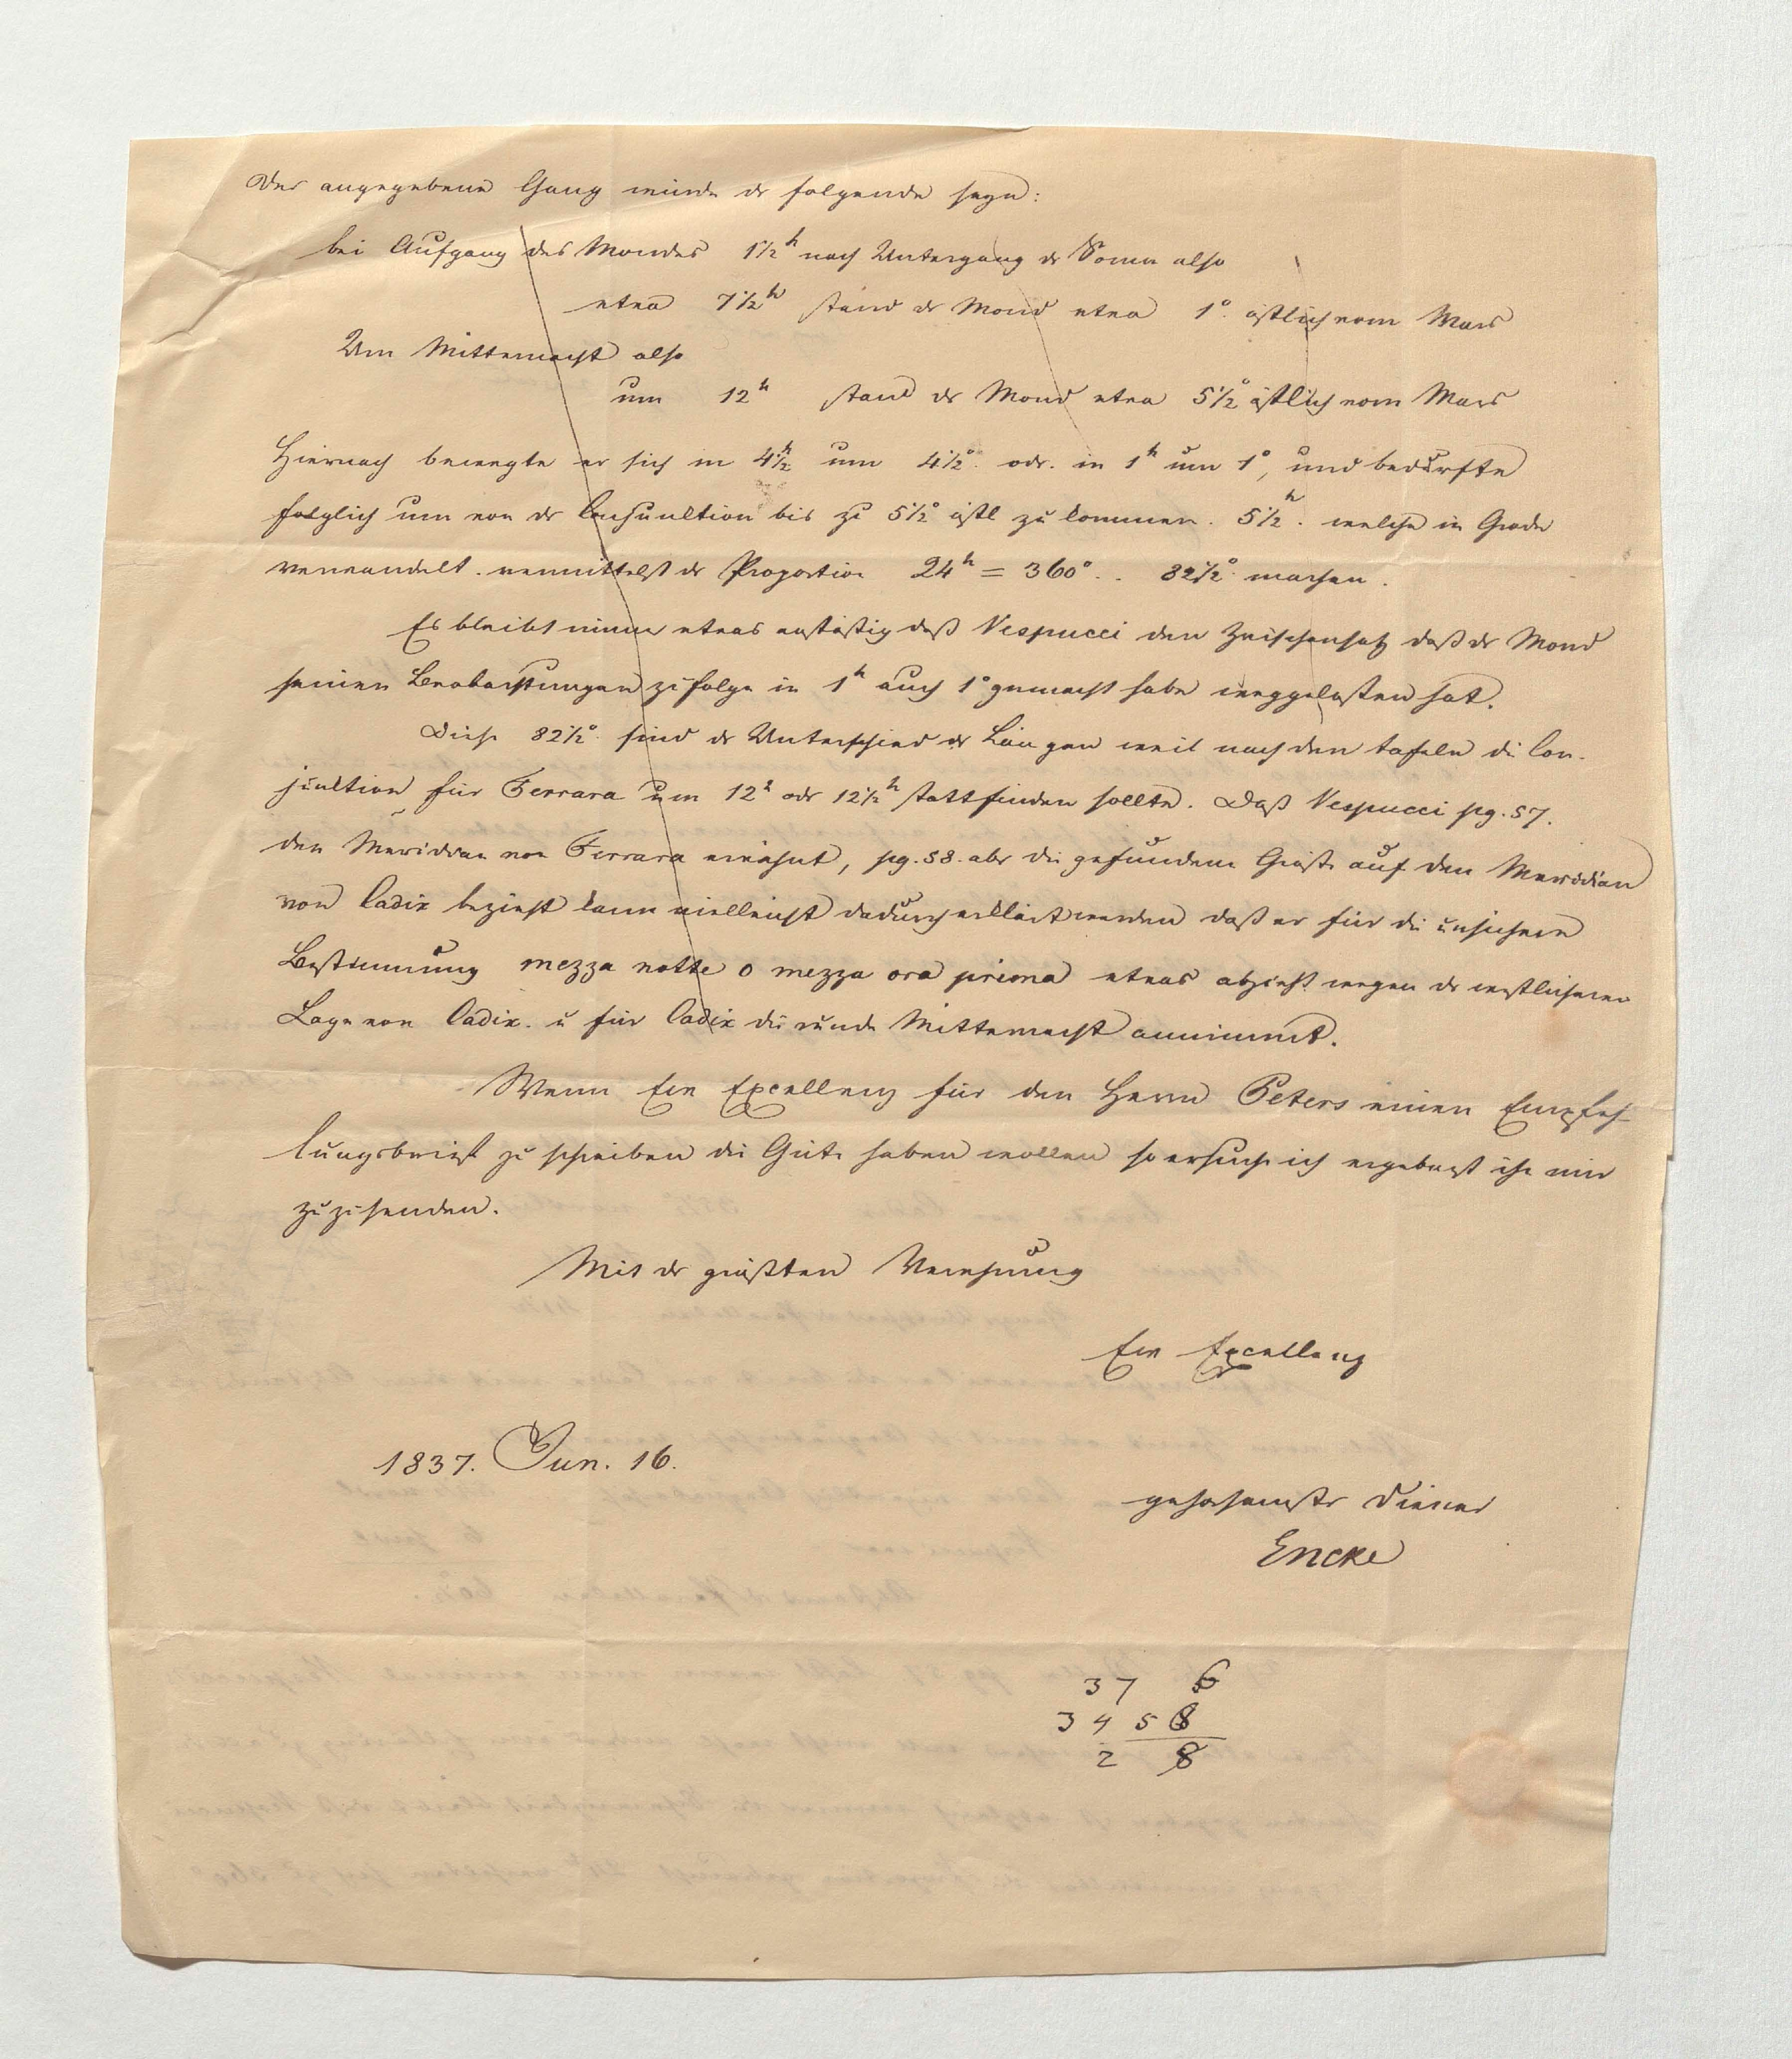 Der angegebene Gang würde der folgende seyn:
bei Aufgang des Mondes 1½ʰ nach Untergang der Sonne also
etwa 7½ʰ stand der Mond etwa 1° östlich vom Mars
Um Mitternacht also
um 12ʰ stand der Mond etwa 5½° östlich vom Mars
Hiernach bewegte er sich in 4½ʰ um 4½° odr. in 1ʰ um 1°, und bedürfte
folglich um von der Conjunktion bis zu 5½° östl zu kommen. 5½ʰ. welche in Grade
verwandelt. vermittelst der Proportion 24ʰ = 360° .. 82½° machen.
Es bleibt immer etwas anstößig daß Vespucci den Zwischensatz daß der Mond
seinen Beobachtungen zufolge in 1ʰ auch 1° gemacht habe weggelassen hat.
Diese 82½° sind der Unterschied der Längen weil nach den Tafeln die Con-
junktion für Ferrara um 12ʰ oder 12½ʰ stattfinden sollte. Daß Vespucci pg. 57.
den Meridian von Ferrara erwähnt, pg. 58. aber die gefundene Größe auf den Meridian
von Cadix bezieht kann vielleicht dadurch erklärt werden daß er für die unsichere
Bestimmung mezza notte o mezza ora prima etwas abzieht wegen der westlicheren
Lage von Cadix. u für Cadix die runde Mitternacht annimmt.
Wenn Ew Excellenz für den Herrn Peters einen Empfeh-
lungsbrief zu schreiben die Güte haben wollen so ersuche ich ergebenst ihn mir
zuzusenden.
Mit der größten Verehrung
Ew Excellenz
1837. Jun. 16.
gehorsamster Diener
Encke
37 6
34 58
2 8